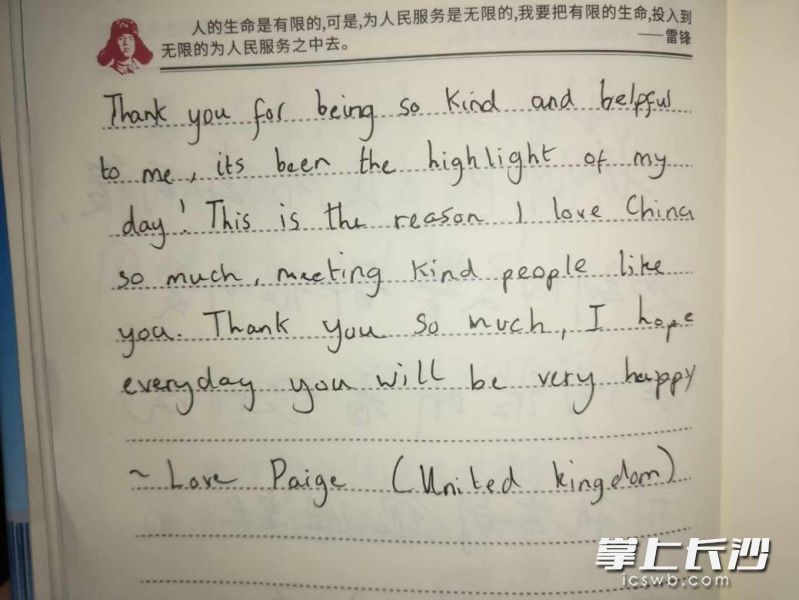 人的生命是有限的,可是,为人民服务是无限的,我要把有限的生命,投入到
无限的为人民服务之中去。
——雷锋
Thank you for being so kind and helpful
to me, its been the highlight of my
day! This is the reason I love China
so much, meeting kind people like
you. Thank you so much, I hope
everyday you will be very happy
~ Love Paige (United kingdom)
掌上长沙
icswb.com